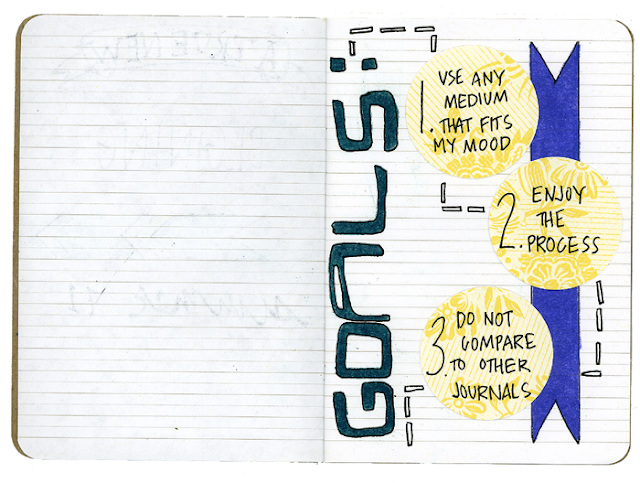 GOALS:
1. USE ANY
MEDIUM
THAT FITS
MY MOOD
2. ENJOY
THE
PROCESS
3. DO NOT
COMPARE
TO OTHER
JOURNALS